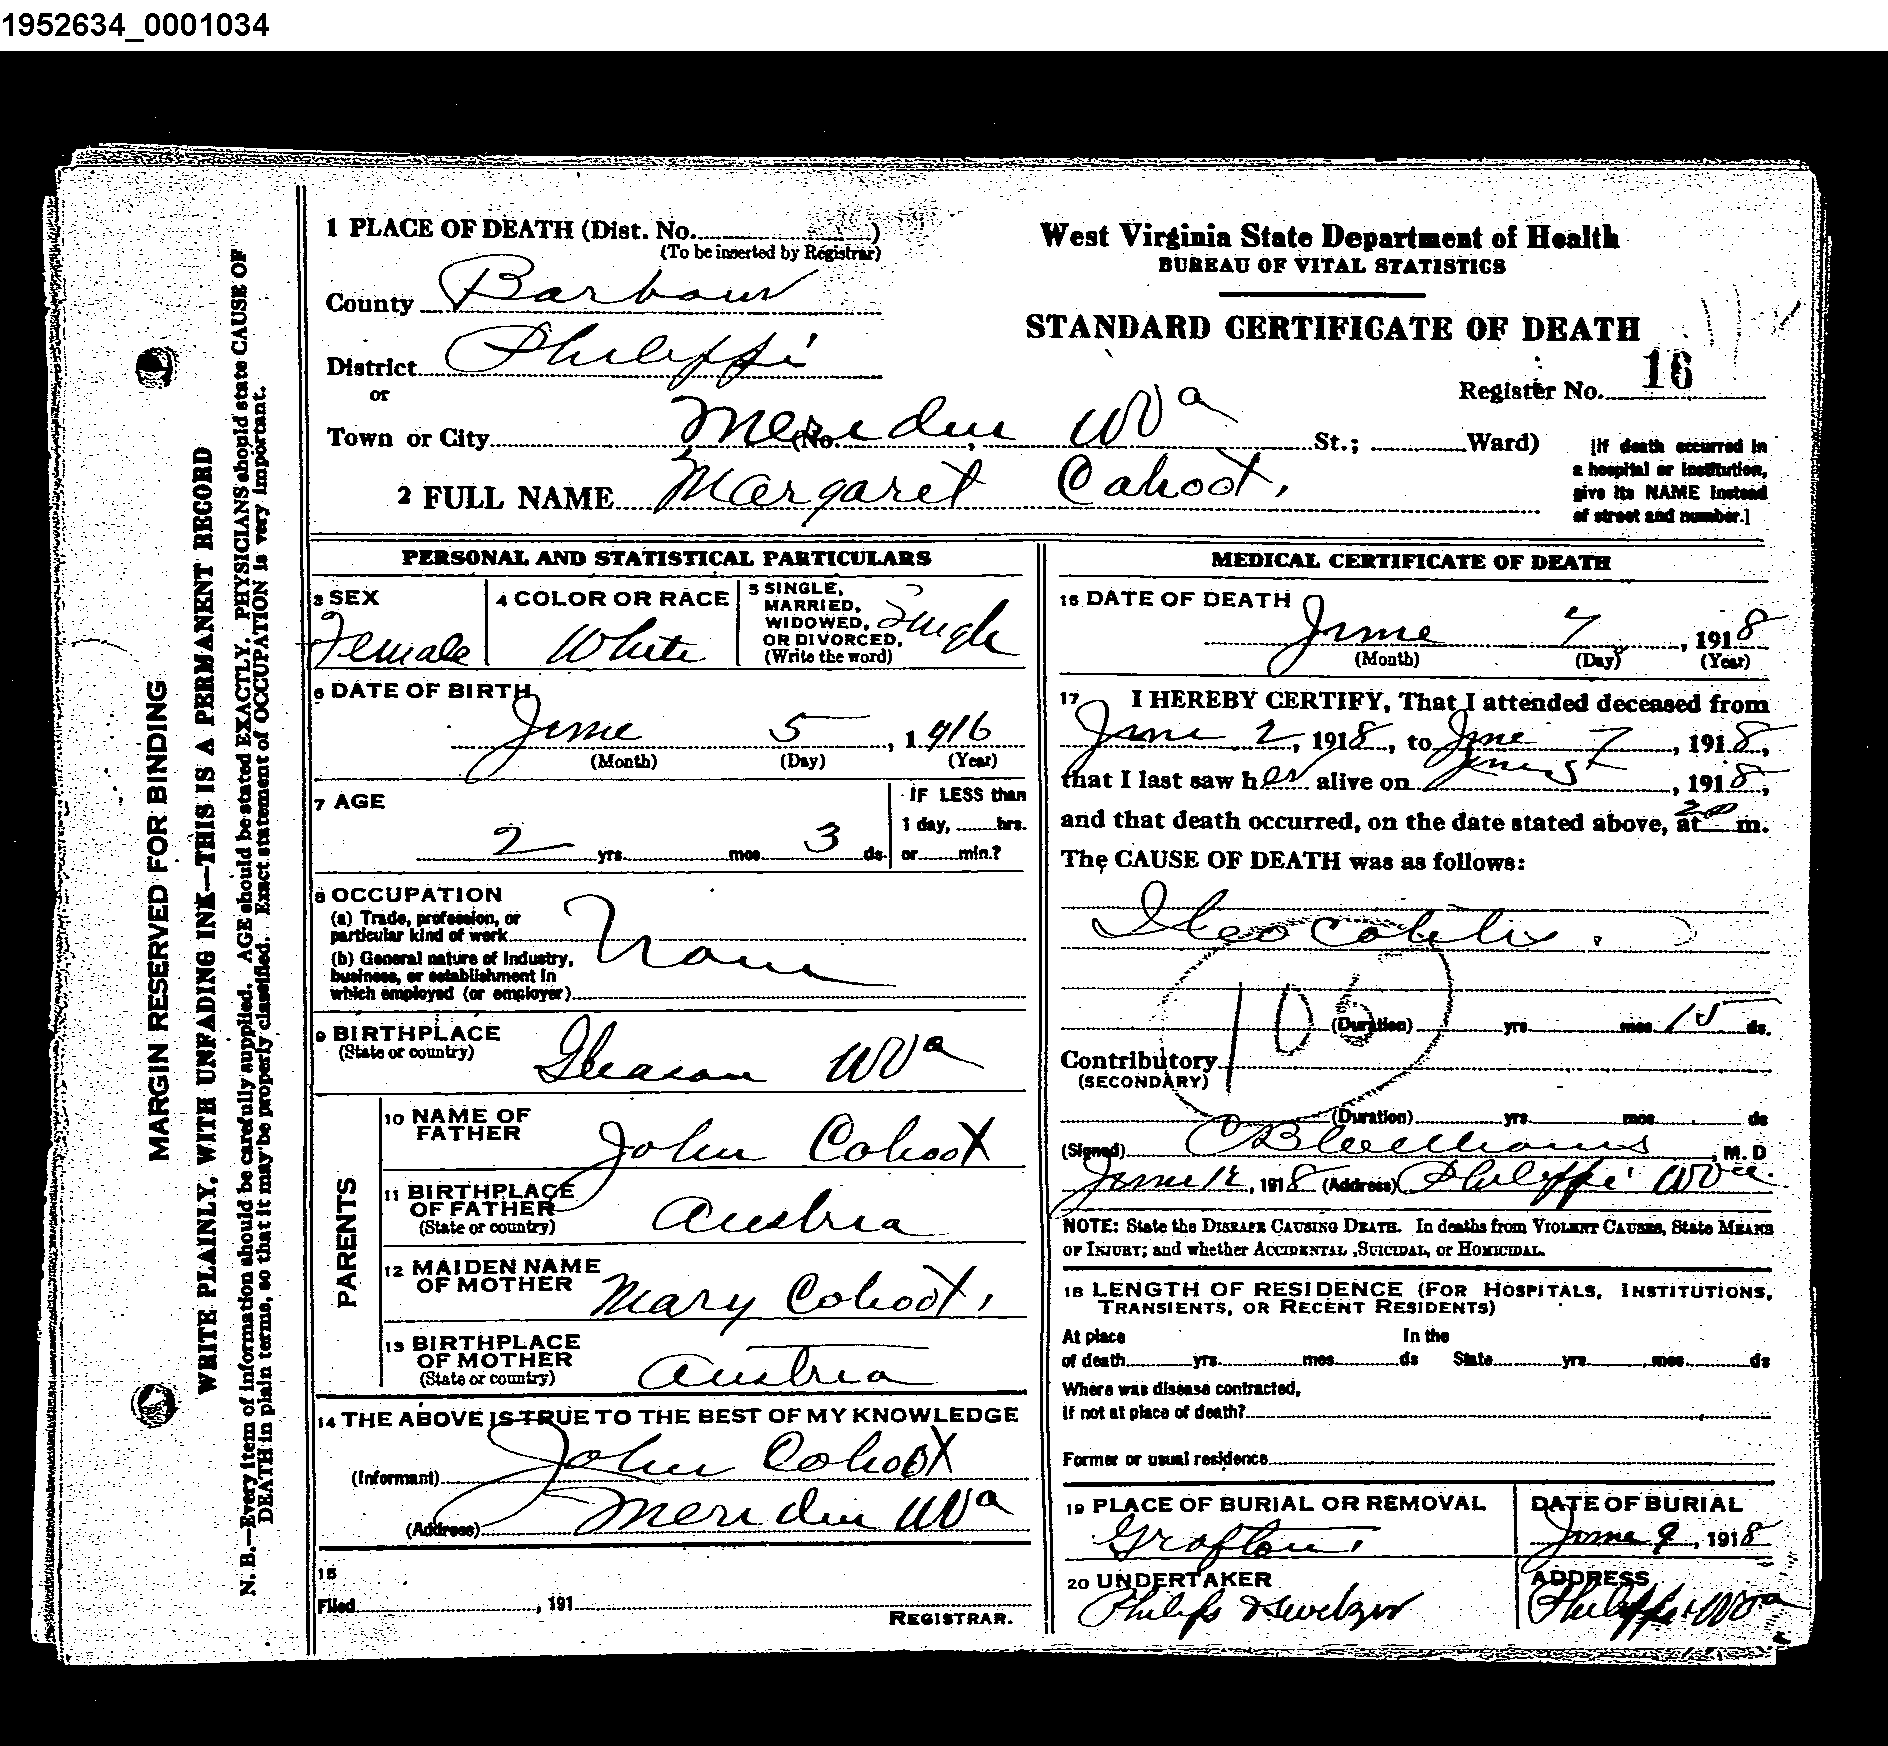 1952634_0001034
1 PLACE OF DEATH (Dist. No. )
(To be inserted by Registrar)
County Barbour
District Philippi
or
Town or City Meriden W Va (No. St.; Ward)
2 FULL NAME Margaret Cahoot.
West Virginia State Department of Health
BUREAU OF VITAL STATISTICS
STANDARD CERTIFICATE OF DEATH
Register No. 16
[If death occurred in
a hospital or institution,
give its NAME instead
of street and number.]
MARGIN RESERVED FOR BINDING
WRITE PLAINLY, WITH UNFADING INK—THIS IS A PERMANENT RECORD
N. B.—Every item of information should be carefully supplied. AGE should be stated EXACTLY. PHYSICIANS should state CAUSE OF
DEATH in plain terms, so that it may be properly classified. Exact statement of OCCUPATION is very important.
PERSONAL AND STATISTICAL PARTICULARS
3 SEX
Female
4 COLOR OR RACE
White
5 SINGLE,
MARRIED,
WIDOWED,
OR DIVORCED.
(Write the word)
Single
6 DATE OF BIRTH
June 5, 1916
(Month) (Day) (Year)
7 AGE
2 yrs. mos. 3 ds.
IF LESS than
1 day, hrs.
or min.?
8 OCCUPATION
(a) Trade, profession, or
particular kind of work
(b) General nature of industry,
business, or establishment in
which employed (or employer)
None
9 BIRTHPLACE
(State or country)
Gleason W Va
PARENTS
10 NAME OF
FATHER
John Cohoot
11 BIRTHPLACE
OF FATHER
(State or country)
Austria
12 MAIDEN NAME
OF MOTHER
Mary Cohoot,
13 BIRTHPLACE
OF MOTHER
(State or country)
Austria
14 THE ABOVE IS TRUE TO THE BEST OF MY KNOWLEDGE
(Informant) John Cohoot
(Address) Meriden W Va
15
Filed , 191
REGISTRAR.
MEDICAL CERTIFICATE OF DEATH
16 DATE OF DEATH
June 7, 1918
(Month) (Day) (Year)
17 I HEREBY CERTIFY, That I attended deceased from
June 2, 1918, to June 7, 1918,
that I last saw her alive on June 5, 1918,
and that death occurred, on the date stated above, at m.
The CAUSE OF DEATH was as follows:
Ileo Colitis.
106
(Duration) yrs. mos. 15 ds.
Contributory
(SECONDARY)
(Duration) yrs. mos. ds
(Signed) C B Williams, M. D
June 12, 1918 (Address) Philippi W Va.
NOTE: State the DISEASE CAUSING DEATH. In deaths from VIOLENT CAUSES, State MEANS
OF INJURY; and whether ACCIDENTAL, SUICIDAL, or HOMICIDAL.
18 LENGTH OF RESIDENCE (FOR HOSPITALS, INSTITUTIONS,
TRANSIENTS, OR RECENT RESIDENTS)
At place In the
of death yrs. mos. ds State yrs. mos. ds
Where was disease contracted,
If not at place of death?
Former or usual residence
19 PLACE OF BURIAL OR REMOVAL
Grafton,
DATE OF BURIAL
June 9, 1918
20 UNDERTAKER
Philips
ADDRESS
Philippi W Va